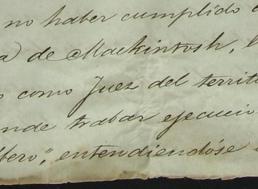 no haber cumplido
de Mackintosh,
como Juez del territ
nde trabar ejecuci
bero", entendiéndose